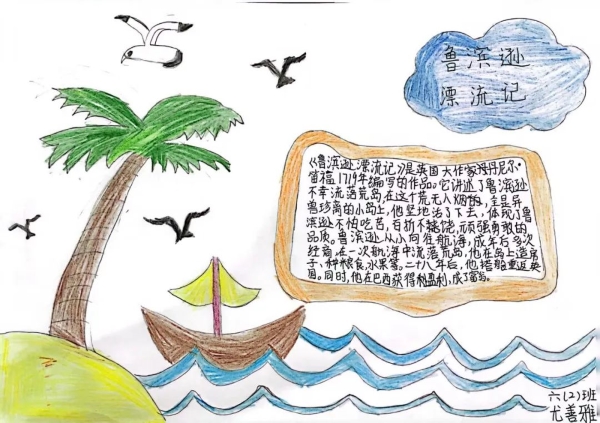 鲁滨逊
漂流记
《鲁滨逊漂流记》是英国大作家丹尼尔·
笛福1719年编写的作品。它讲述了鲁滨逊
不幸流落荒岛,在这个荒无人烟的,
兽珍禽的小岛上,他坚地活了下去,体现了鲁
滨逊不怕吃苦,百折不挠,顽强勇敢的
品质。鲁滨逊从小向往航海,成年后多次
经商,在一次航海中流落荒岛,他在岛上造房
子、种粮食、水果等。二十八年后,他搭船重返英
国。同时,他在巴西获得利,成了富翁。
六(2)班
尤善雅